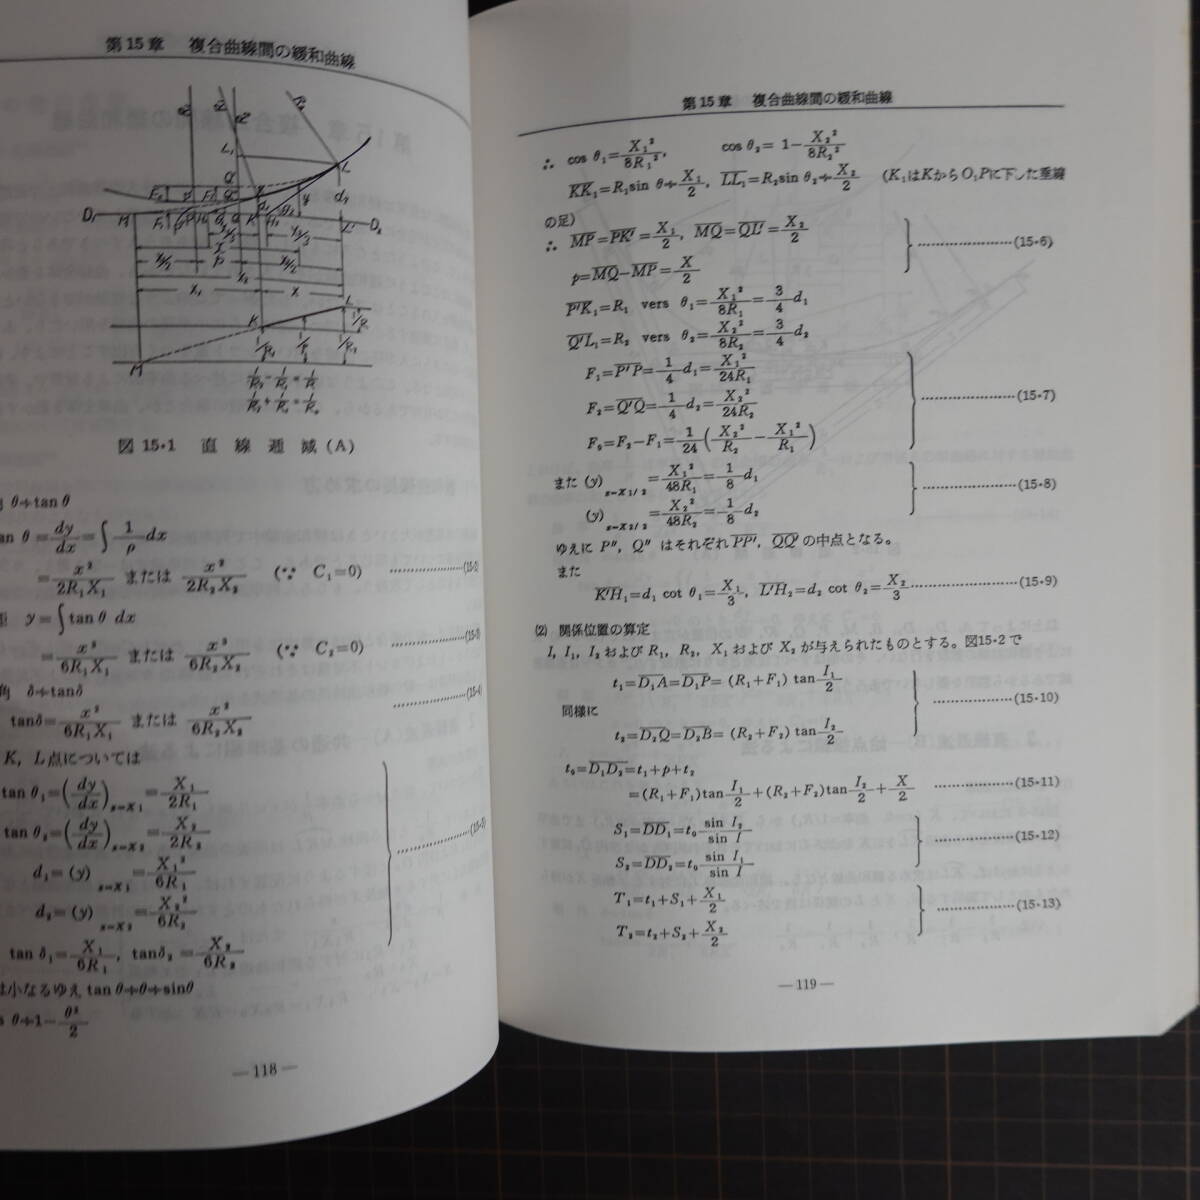 第15章 複合曲線間の緩和曲線
図 15・1 直 線 逓 減 (A)
θ≑tan θ
an θ = dy/dx = ∫ 1/ρ dx
= x²/2R₁X₁ または x²/2R₂X₂ (∵ C₁=0) ……(15・2)
y=∫tan θ dx
= x³/6R₁X₁ または x³/6R₂X₂ (∵ C₂=0) ……(15・3)
角 δ≑tanδ
tanδ= x²/6R₁X₁ または x²/6R₂X₂ ……(15・4)
K, L点については
tan θ₁=(dy/dx)x=X₁ = X₁/2R₁
tan θ₂=(dy/dx)x=X₂ = X₂/2R₂
d₁=(y)x=X₁ = X₁²/6R₁ ……(15・5)
d₂=(y)x=X₂ = X₂²/6R₂
tan δ₁= X₁/6R₁, tanδ₂ = X₂/6R₂
は小なるゆえ tan θ≑θ≑sinθ
s θ≑1− θ²/2
—118—
第15章 複合曲線間の緩和曲線
∴ cos θ₁= X₁²/8R₁², cos θ₂= 1− X₂²/8R₂²
KK₁=R₁sin θ≑ X₁/2, LL₁=R₂sin θ₂≑ X₂/2 (K₁はKからO₁Pに下した垂線
の足)
∴ MP=PK′= X₁/2, MQ=QL′= X₂/2
p=MQ−MP= X/2 ……(15・6)
P′K₁=R₁ vers θ₁= X₁²/8R₁ = 3/4 d₁
Q′L₁=R₂ vers θ₂= X₂²/8R₂ = 3/4 d₂
F₁=P′P= 1/4 d₁= X₁²/24R₁
F₂=Q′Q= 1/4 d₂= X₂²/24R₂ ……(15・7)
F₀=F₂−F₁= 1/24 (X₂²/R₂ − X₁²/R₁)
また (y)x=X₁/2 = X₁²/48R₁ = 1/8 d₁ ……(15・8)
(y)x=X₂/2 = X₂²/48R₂ = 1/8 d₂
ゆえに P″, Q″ はそれぞれPP′, QQ′の中点となる。
また
K′H₁=d₁ cot θ₁= X₁/3, L′H₂=d₂ cot θ₂= X₂/3 ……(15・9)
(2) 関係位置の算定
I, I₁, I₂ および R₁, R₂, X₁ および X₂ が与えられたものとする。図15・2 で
t₁=D₁A=D₁P= (R₁+F₁) tan I₁/2
同様に ……(15・10)
t₂=D₂Q=D₂B= (R₂+F₂) tan I₂/2
t₀=D₁D₂=t₁+p+t₂
=(R₁+F₁)tan I₁/2 +(R₂+F₂)tan I₂/2 + X/2 ……(15・11)
S₁=DD₁=t₀ sin I₂/sin I ……(15・12)
S₂=DD₂=t₀ sin I₁/sin I
T₁=t₁+S₁+ X₁/2 ……(15・13)
T₂=t₂+S₂+ X₂/2
—119—